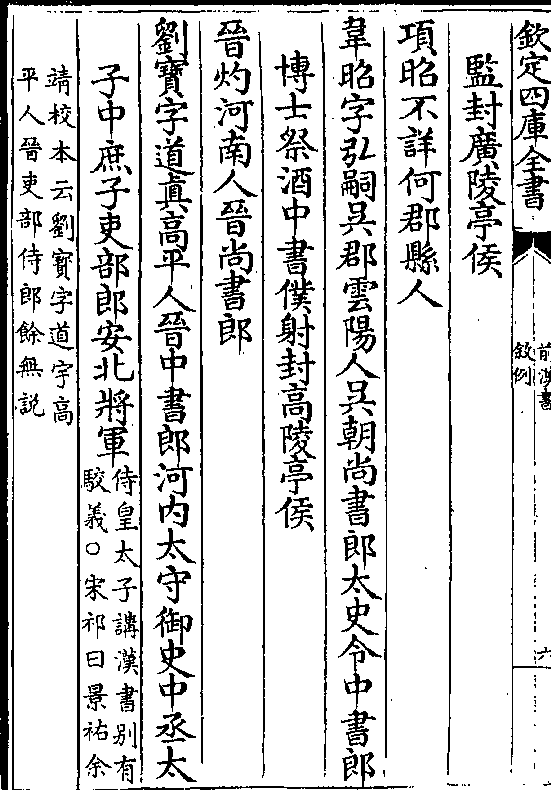 欽定四庫全書
前漢書
敘例
六
監封廣陵亭侯
項昭不詳何郡縣人
韋昭字弘嗣吳郡雲陽人吳朝尚書郎太史令中書郎
博士祭酒中書僕射封高陵亭侯
晉灼河南人晉尚書郎
劉寶字道真高平人晉中書郎河內太守御史中丞太
子中庶子吏部郎安北將軍侍皇太子講漢書別有
駮義○宋祁曰景祐余
靖校本云劉寶字道字高
平人晉吏部侍郎餘無説